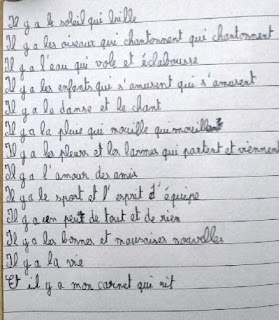 Il y a le soleil qui brille
Il y a les oiseaux qui chantonnent qui chantonnent
Il y a l'eau qui vole et éclabousse
Il y a les enfants qui s'amusent qui s'amusent
Il y a la danse et le chant
Il y a la pluie qui mouille qui mouille
Il y a les pleurs et les larmes qui partent et viennent
Il y a l'amour des amis
Il y a le sport et l'esprit d'équipe
Il y a un peu de tout et de rien
Il y a les bonnes et mauvaises nouvelles
Il y a la vie
Et il y a mon carnet qui rit